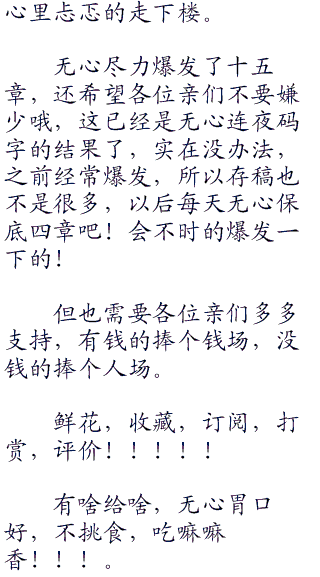 心里忐忑的走下楼。
　　无心尽力爆发了十五
章，还希望各位亲们不要嫌
少哦，这已经是无心连夜码
字的结果了，实在没办法，
之前经常爆发，所以存稿也
不是很多，以后每天无心保
底四章吧！会不时的爆发一
下的！
　　但也需要各位亲们多多
支持，有钱的捧个钱场，没
钱的捧个人场。
　　鲜花，收藏，订阅，打
赏，评价！！！！！
　　有啥给啥，无心胃口
好，不挑食，吃嘛嘛
香！！！。